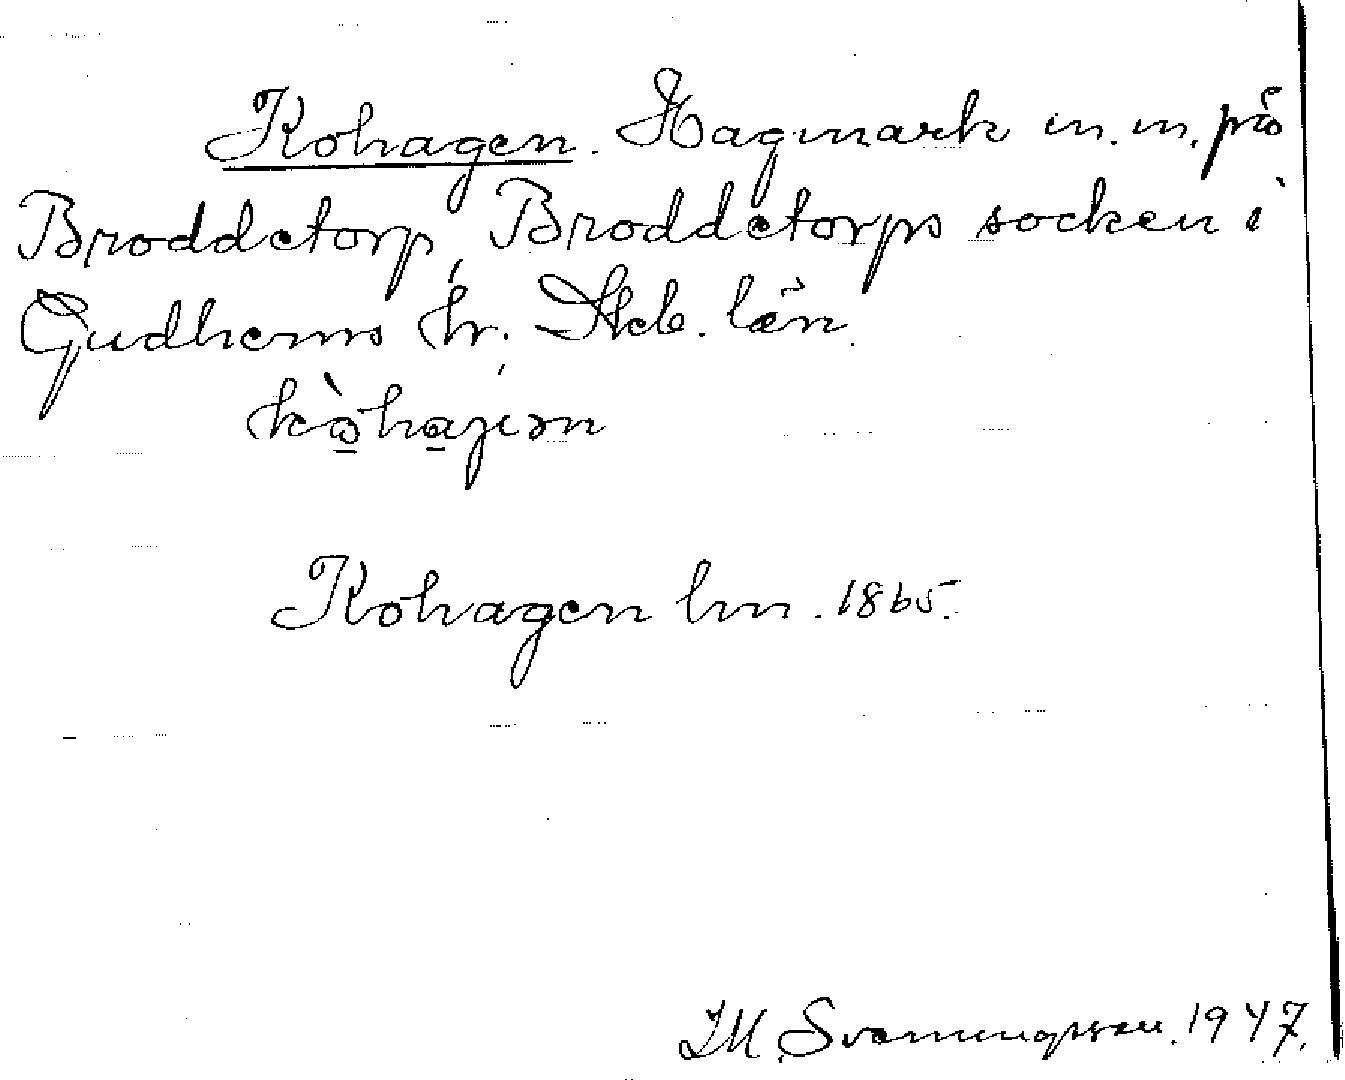 Kohagen. Hagmark m.m. på
Broddetorp, Broddetorps socken i
Gudhems hr. Skb. län.
kòhajən
Kohagen lm. 1865.
J M Svenningsson. 1947.